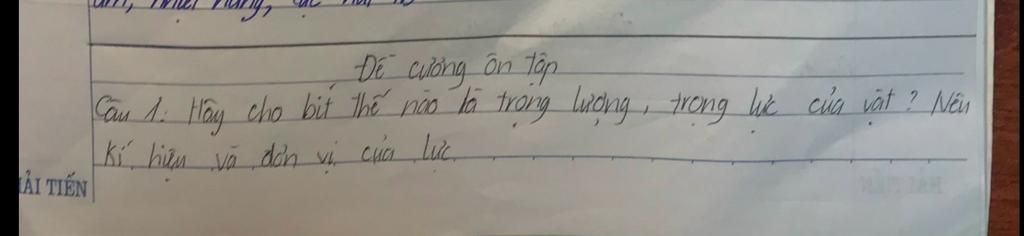 Đề cương ôn tập
Câu 1: Hãy cho biết thế nào là trọng lượng, trọng lực của vật? Nêu
kí hiệu và đơn vị của lực
HẢI TIẾN